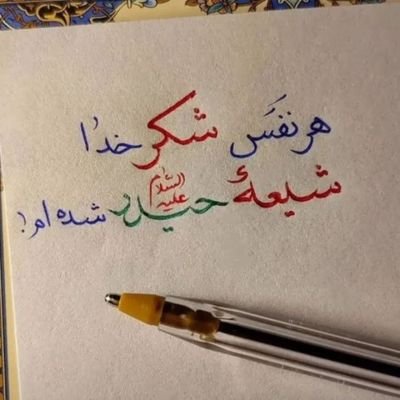 هر نفَس شکر خدا
شیعهٔ حیدر علیه السّلام شده ام!